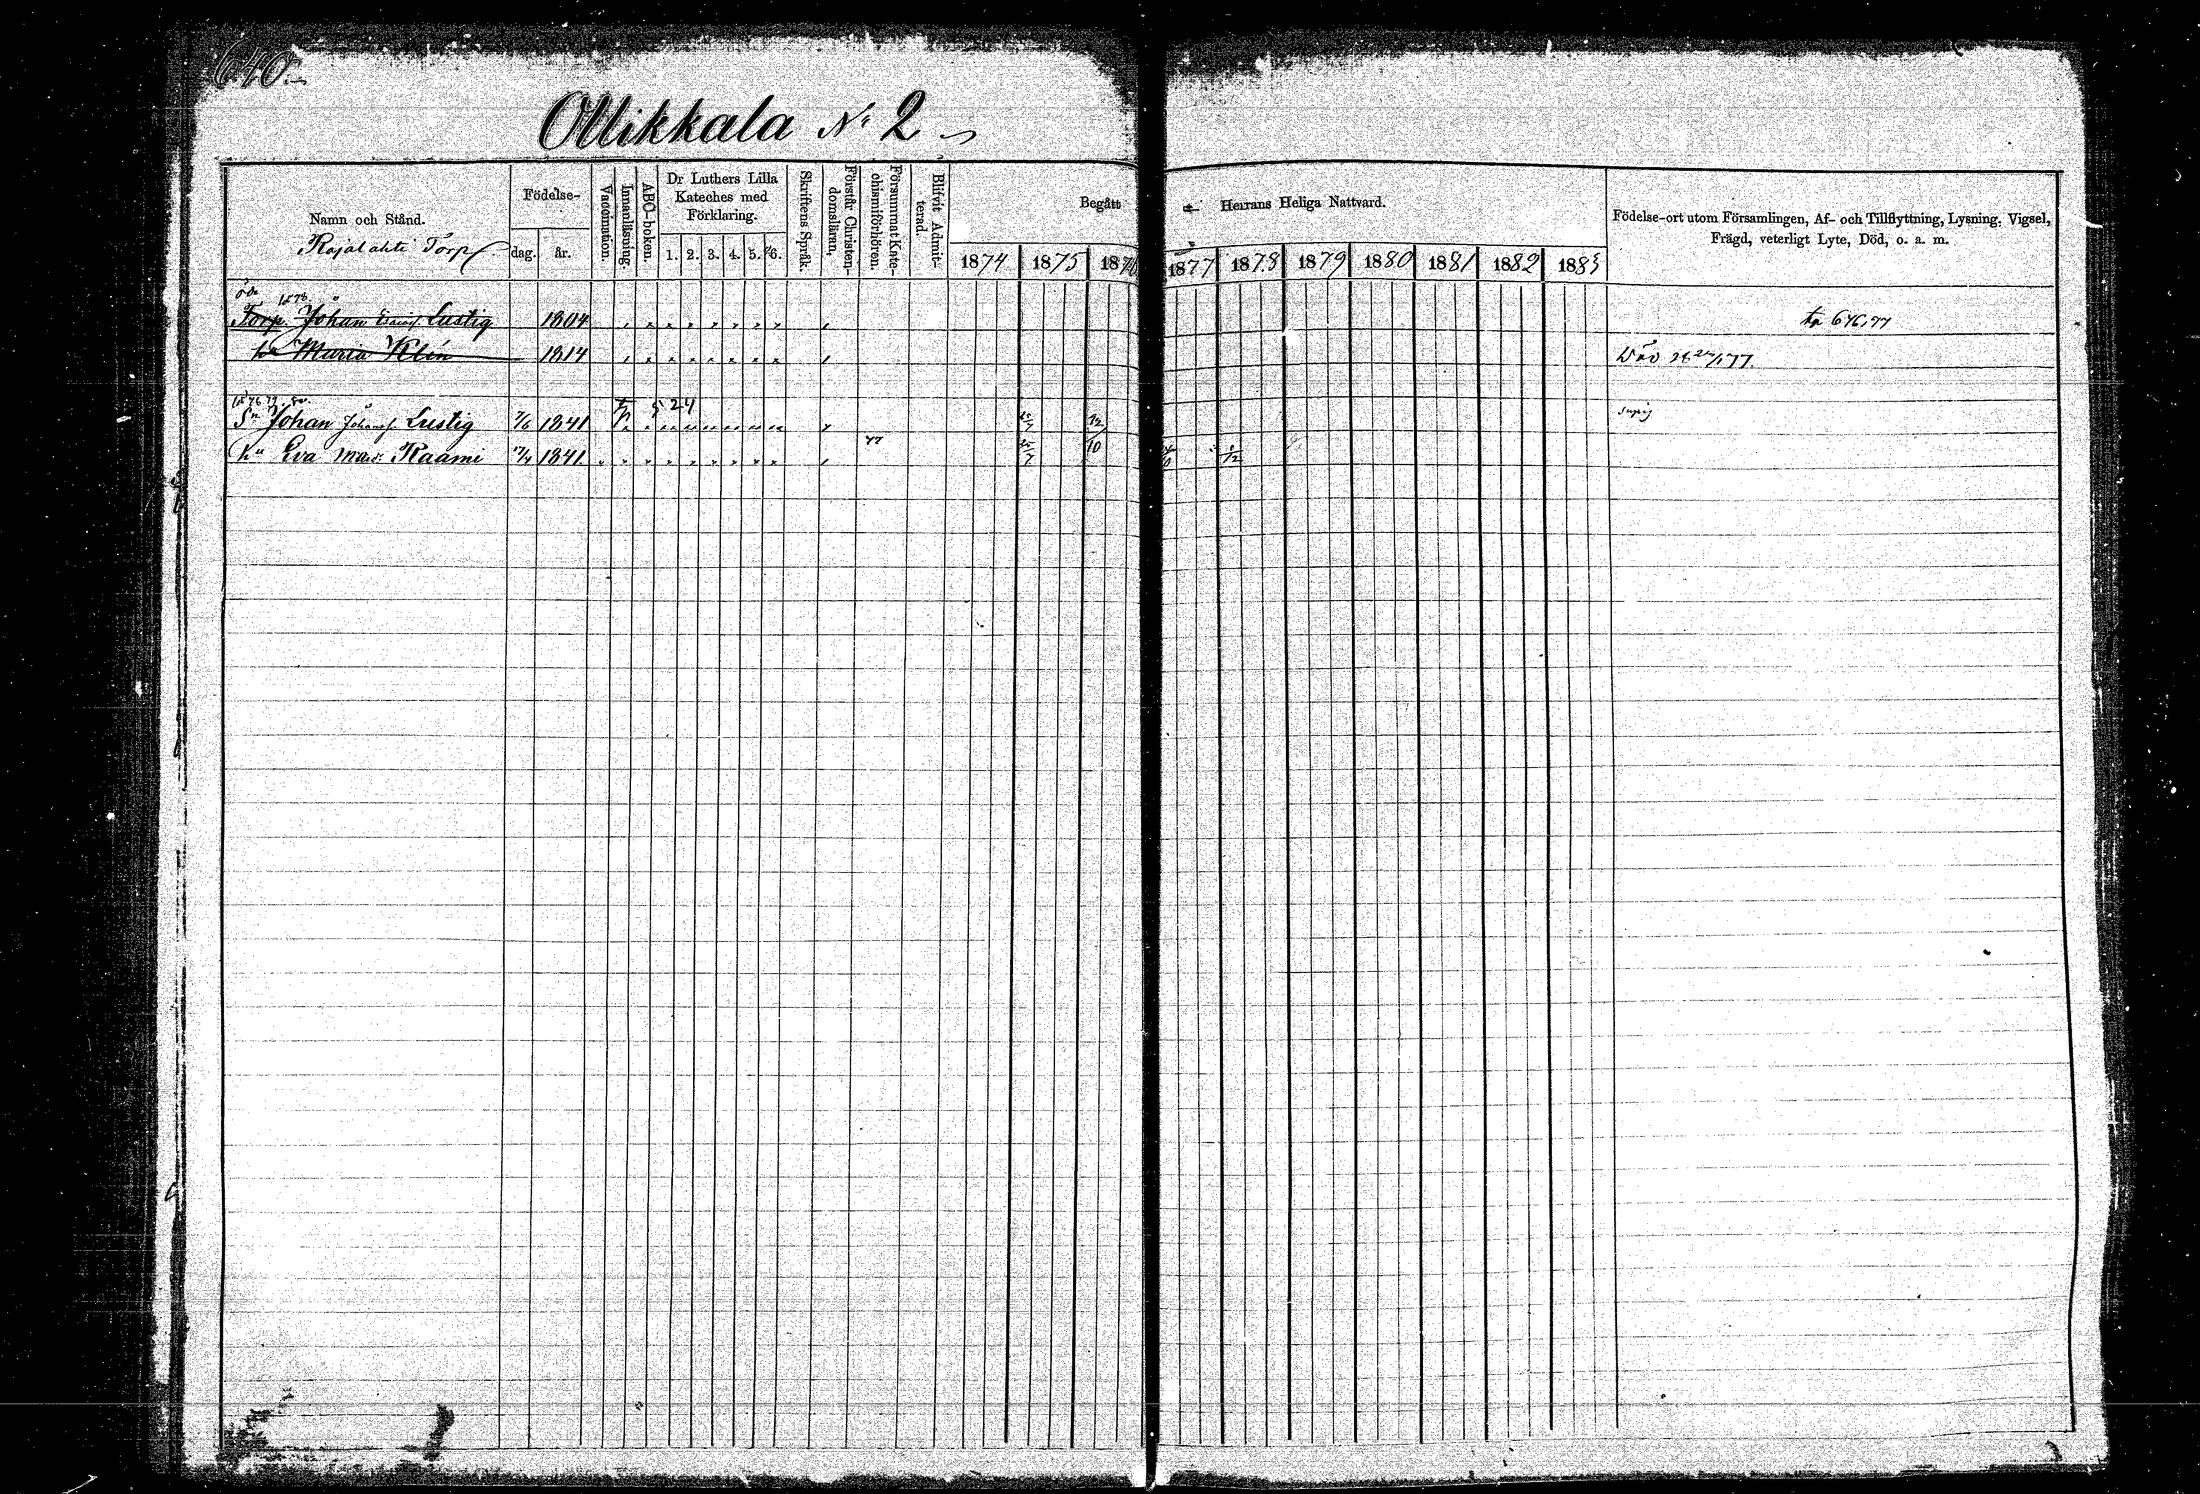 640.
Ollikkala No 2
Namn och Stånd.
Rojalahti Torp
Födelse-
dag. år.
Vaccination.
Innanläsning.
ABC-boken.
Dr Luthers Lilla Kateches med Förklaring.
1. 2. 3. 4. 5. 6.
Skriftens Språk.
Förstår Christendomsläran,
Försummat Katechismiförhören.
Blifvit Admitterad.
Begått Herrans Heliga Nattvard.
1874 1875 1876 1877 1878 1879 1880 1881 1882 1883
Födelse-ort utom Församlingen, Af- och Tillflyttning, Lysning, Vigsel,
Frägd, veterligt Lyte, Död, o. a. m.
Torp. Johan Lustig 1804
Maria Klén 1814 Död
Sn Johan Johansf. Lustig 7/6 1841
hu Eva Raami 17/4 1841.